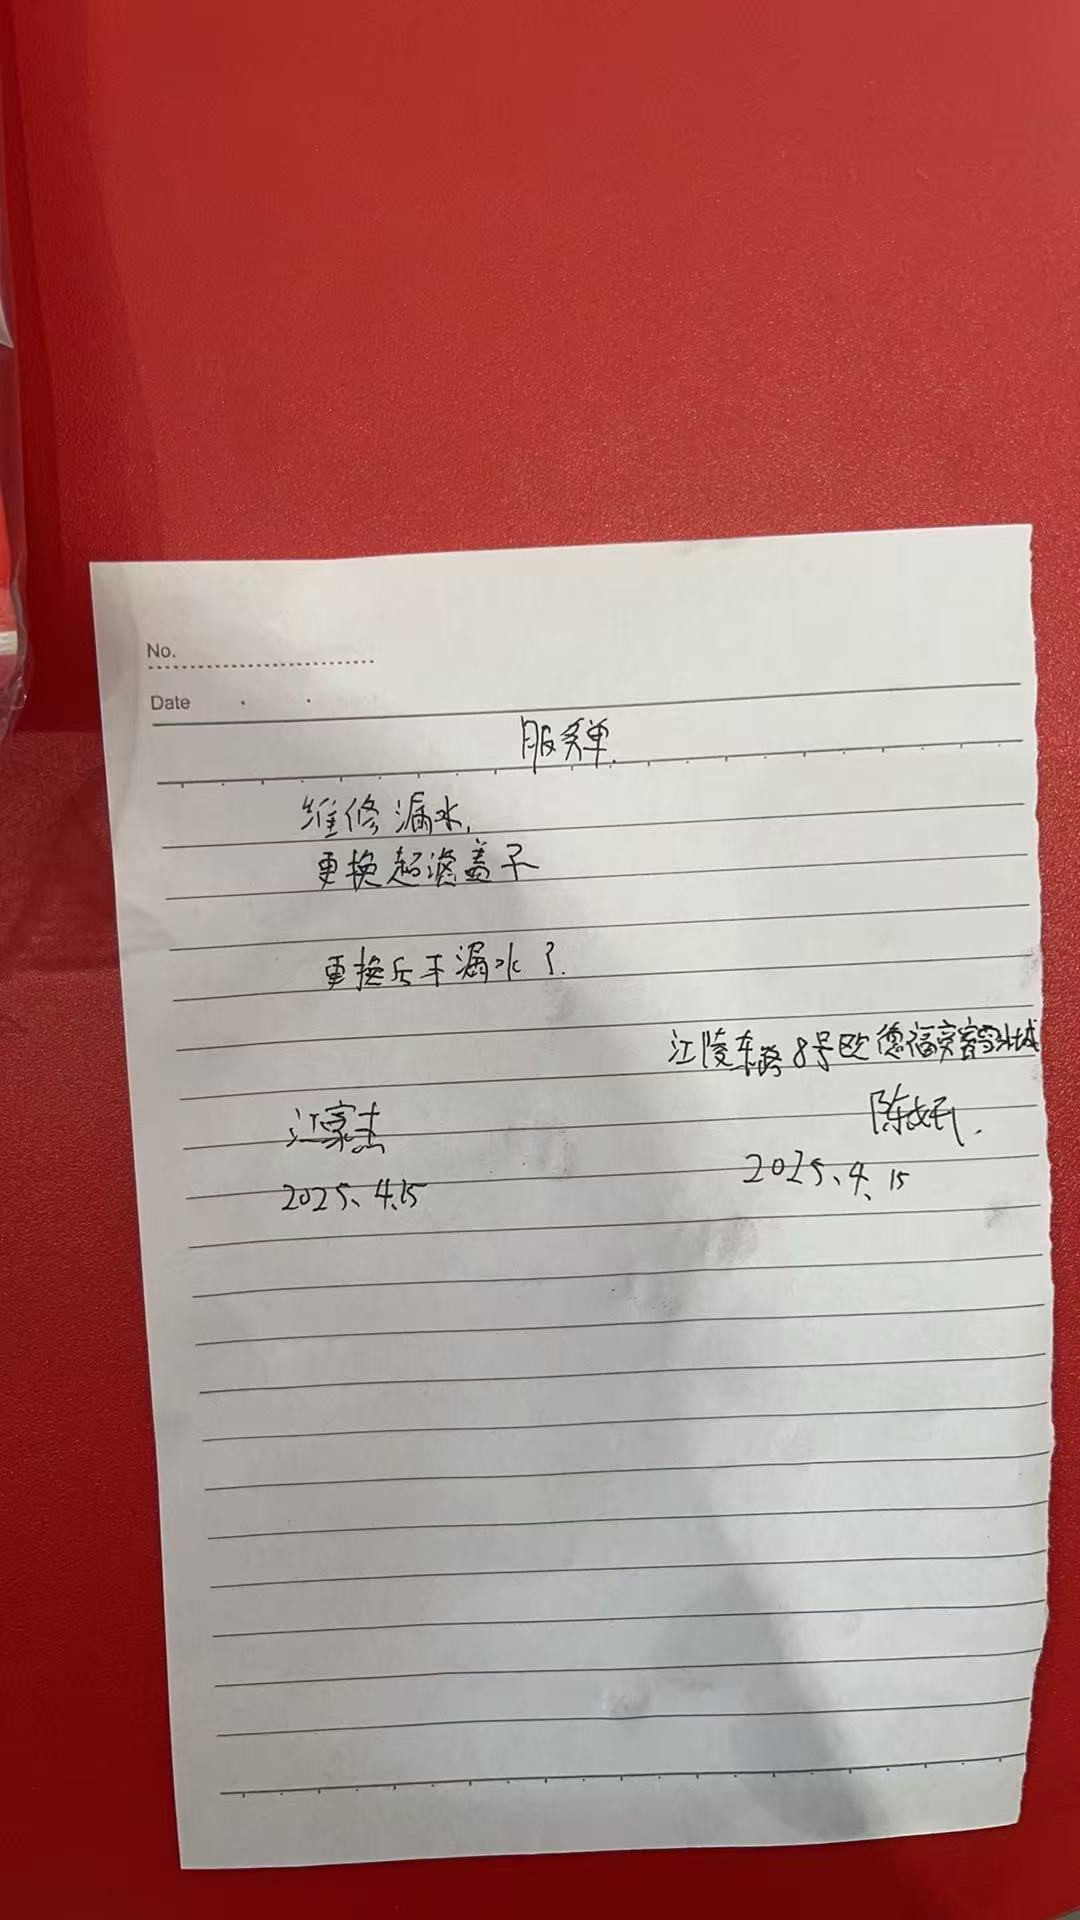 No.
Date
服务单.
维修漏水,
更换超滤盖子
更换后不漏水了.
江陵东路8号欧德福
江家杰
陈妍.
2025、4.15
2025、4、15